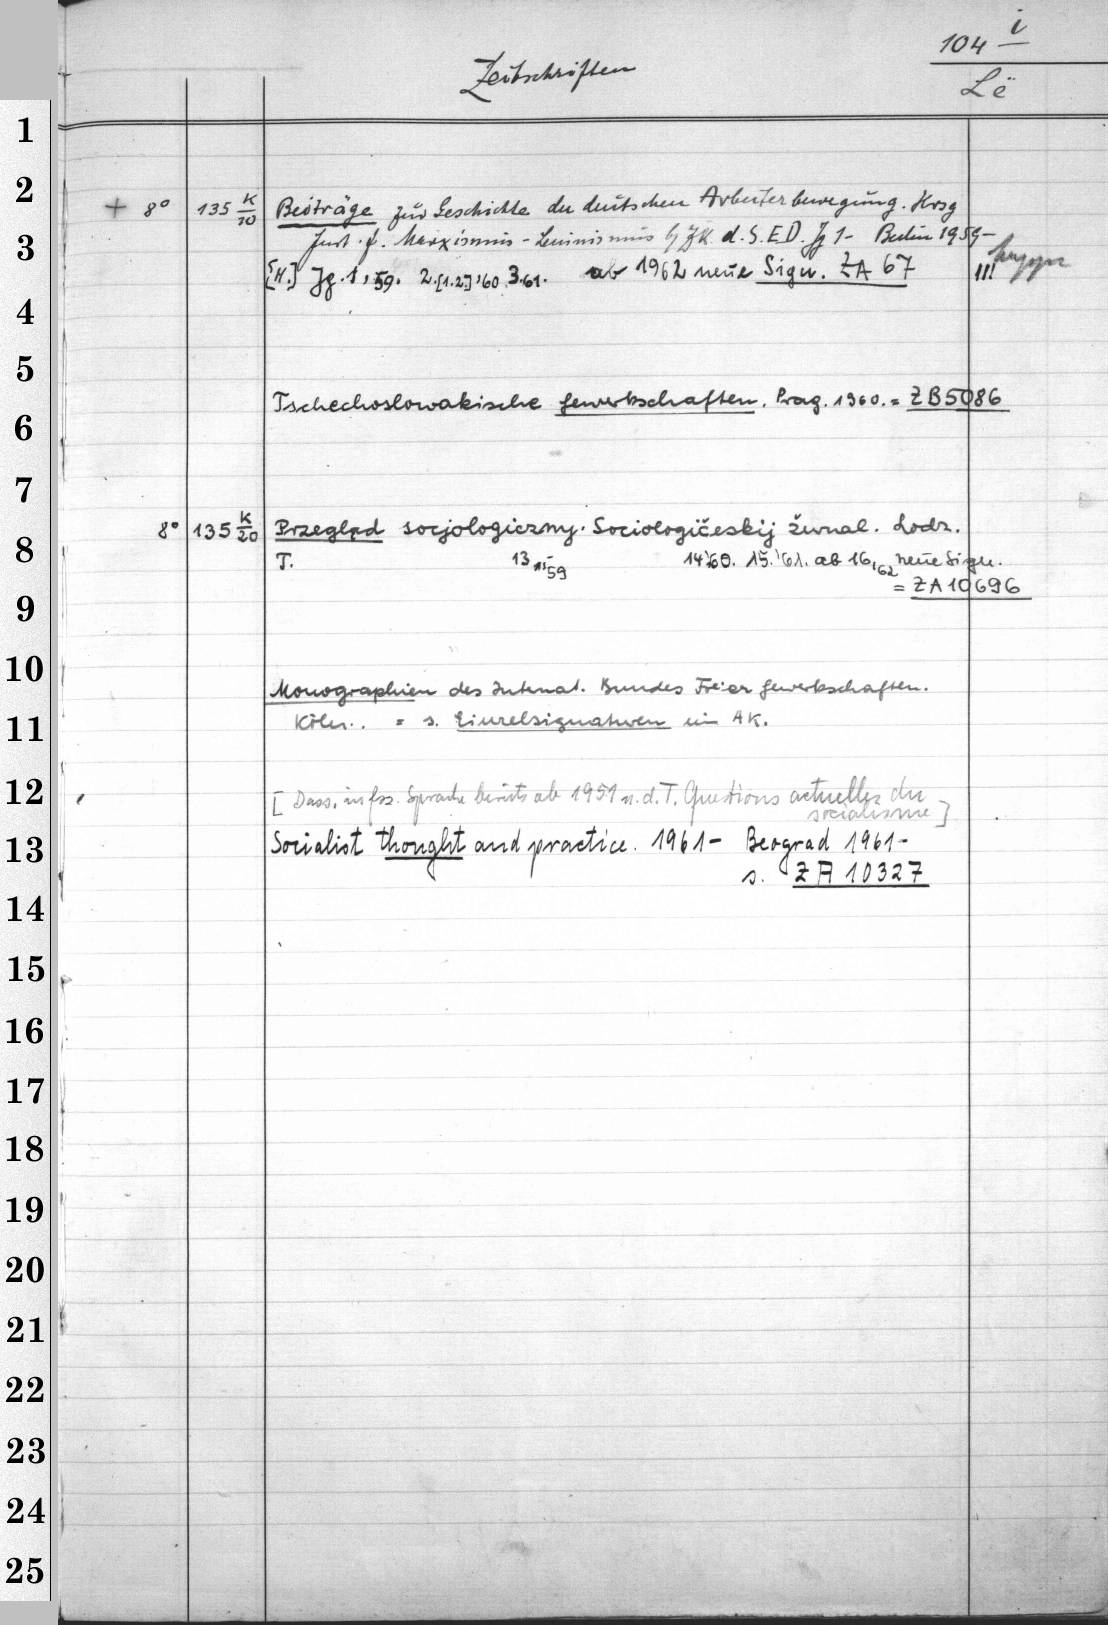 104 i
Zeitschriften
Lë
1
2
+ 8° 135 K/10 Beiträge zur Geschichte der deutschen Arbeiterbewegung. Hrsg
3
Inst. f. Marxismus-Leninismus b. ZK. d. S.E.D. Jg 1- Berlin 1959-
[H.] Jg. 1, 59. 2.[1.2.]'60 3.61. ab 1962 neue Sign. ZA 67 III
4
5
Tschechoslowakische Gewerkschaften. Prag. 1960. = ZB5086
6
7
8° 135 K/20 Przegląd socjologiczny. Sociologičeskij žurnal. Lodz.
8
T. 13 59 14'60. 15.'61. ab 16,62 neue Sign.
= ZA10696
9
10
Monographien des Internat. Bundes Freier Gewerkschaften.
11
Köln.. = s. Einzelsignaturen im AK.
12
[Dass. in frz. Sprache bereits ab 1951 u.d.T. Questions actuelles du
socialisme]
13
Socialist thought and practice. 1961- Beograd 1961-
s. ZA 10327
14
15
16
17
18
19
20
21
22
23
24
25